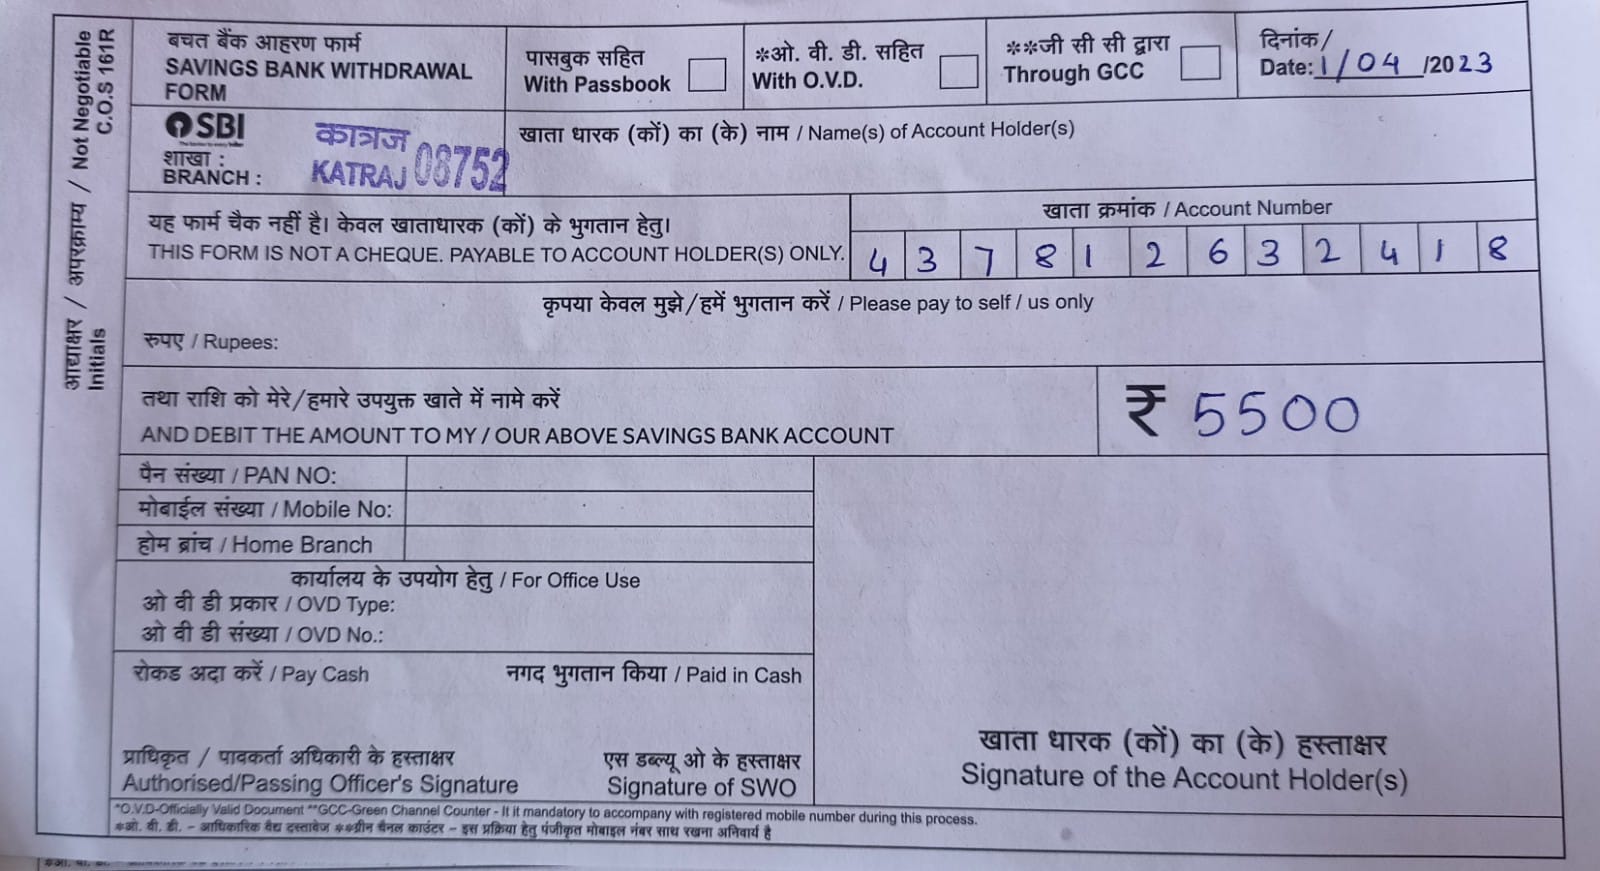 आद्याक्षर / अपरक्राम्य / Not Negotiable
Initials
C.O.S 161R
बचत बैंक आहरण फार्म
SAVINGS BANK WITHDRAWAL
FORM
पासबुक सहित
With Passbook
*ओ. वी. डी. सहित
With O.V.D.
**जी सी सी द्वारा
Through GCC
दिनांक/
Date: 1/04/2023
SBI
शाखा :
BRANCH :
कात्रज
KATRAJ 08752
खाता धारक (कों) का (के) नाम / Name(s) of Account Holder(s)
यह फार्म चैक नहीं है। केवल खाताधारक (कों) के भुगतान हेतु।
THIS FORM IS NOT A CHEQUE. PAYABLE TO ACCOUNT HOLDER(S) ONLY.
खाता क्रमांक / Account Number
4 3 7 8 1 2 6 3 2 4 1 8
कृपया केवल मुझे/हमें भुगतान करें / Please pay to self / us only
रुपए / Rupees:
तथा राशि को मेरे/हमारे उपयुक्त खाते में नामे करें
AND DEBIT THE AMOUNT TO MY / OUR ABOVE SAVINGS BANK ACCOUNT
₹ 5500
पैन संख्या / PAN NO:
मोबाईल संख्या / Mobile No:
होम ब्रांच / Home Branch
कार्यालय के उपयोग हेतु / For Office Use
ओ वी डी प्रकार / OVD Type:
ओ वी डी संख्या / OVD No.:
रोकड अदा करें / Pay Cash
नगद भुगतान किया / Paid in Cash
प्राधिकृत / पावकर्ता अधिकारी के हस्ताक्षर
Authorised/Passing Officer's Signature
एस डब्ल्यू ओ के हस्ताक्षर
Signature of SWO
खाता धारक (कों) का (के) हस्ताक्षर
Signature of the Account Holder(s)
*O.V.D-Officially Valid Document **GCC-Green Channel Counter - It it mandatory to accompany with registered mobile number during this process.
*ओ. वी. डी. – आधिकारिक वैद्य दस्तावेज **ग्रीन चैनल काउंटर – इस प्रक्रिया हेतु पंजीकृत मोबाइल नंबर साथ रखना अनिवार्य है